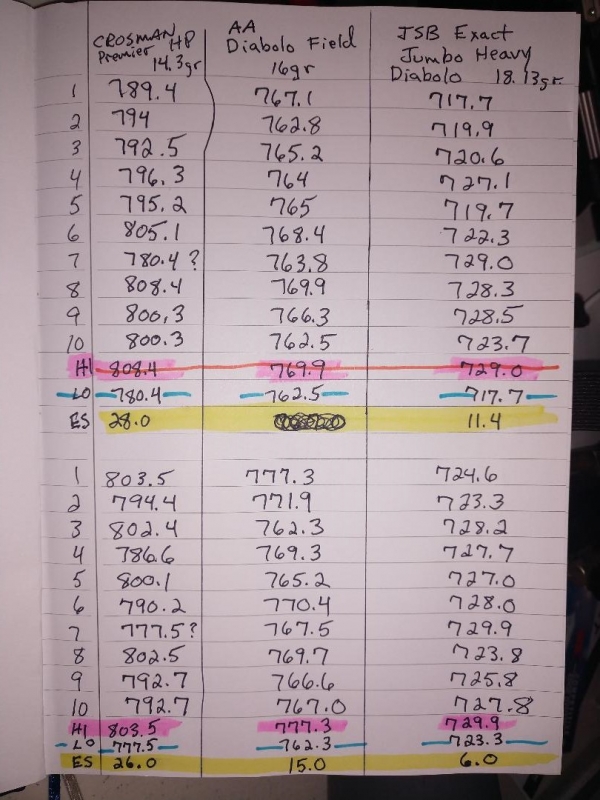 CROSMAN HP AA JSB Exact
Premier Diabolo Field Jumbo Heavy
14.3gr 16gr Diabolo 18.13gr.
1 789.4 767.1 717.7
2 794 762.8 719.9
3 792.5 765.2 720.6
4 796.3 764 727.1
5 795.2 765 719.7
6 805.1 768.4 722.3
7 780.4? 763.8 729.0
8 808.4 769.9 728.3
9 800,3 766.3 728.5
10 800.3 762.5 723.7
HI 808.4 769.9 729.0
LO 780.4 762.5 717.7
ES 28.0 11.4
1 803.5 777.3 724.6
2 794.4 771.9 723.3
3 802.4 762.3 728.2
4 786.6 769.3 727.7
5 800.1 765.2 727.0
6 790.2 770.4 728.0
7 777.5? 767.5 729.9
8 802.5 769.7 723.8
9 792.7 766.6 725.8
10 792.7 767.0 727.8
HI 803.5 777.3 729.9
LO 777.5 762.3 723.3
ES 26.0 15.0 6.0